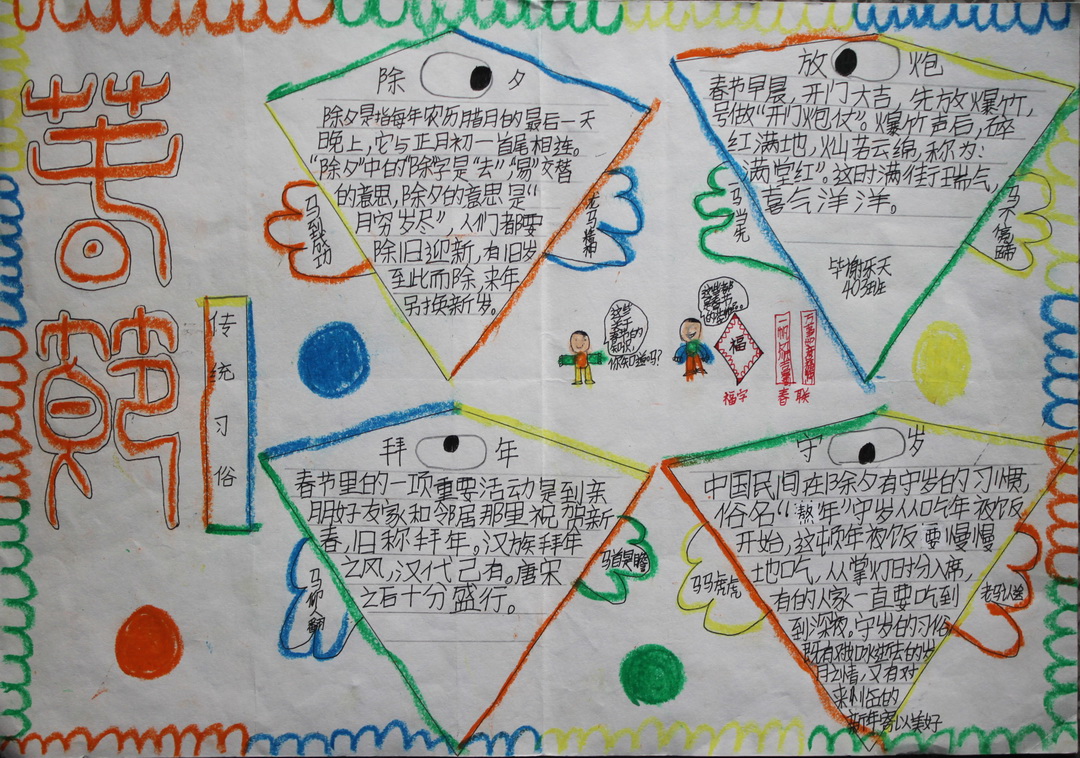 春節
传统习俗
除夕
除夕是指每年农历腊月的最后一天
晚上，它与正月初一首尾相连。
“除夕”中的“除字是“去”，“易”，交替
的意思，除夕的意思是“
月穷岁尽”，人们都要
除旧迎新，有旧岁
至此而除，来年
另换新岁。
马到成功
放炮
春节早晨，开门大吉，先放爆竹，
号做“开门炮仗”。爆竹声后，碎
红满地，灿若云绵，称为：
“满堂红”。这时满街瑞气，
喜气洋洋。
马当先
马不停蹄
毕谢乐天
403班
这些
关于
春节的
知识，
你知道吗？
福
福字
春联
拜年
春节里的一项重要活动是到亲
朋好友家和邻居那里祝贺新
春，旧称拜年。汉族拜年
之风，汉代已有。唐宋
之后十分盛行。
马仰人翻
马首是瞻
守岁
中国民间在除夕有守岁的习惯，
俗名“熬年”守岁从吃年夜饭
开始，这顿年夜饭要慢慢
地吃，从掌灯时分入席，
有的人家一直要吃到
到深夜。守岁的习俗，
既有对如水逝去的岁
月之情，又有对
来临的
新年寄以美好
马马虎虎